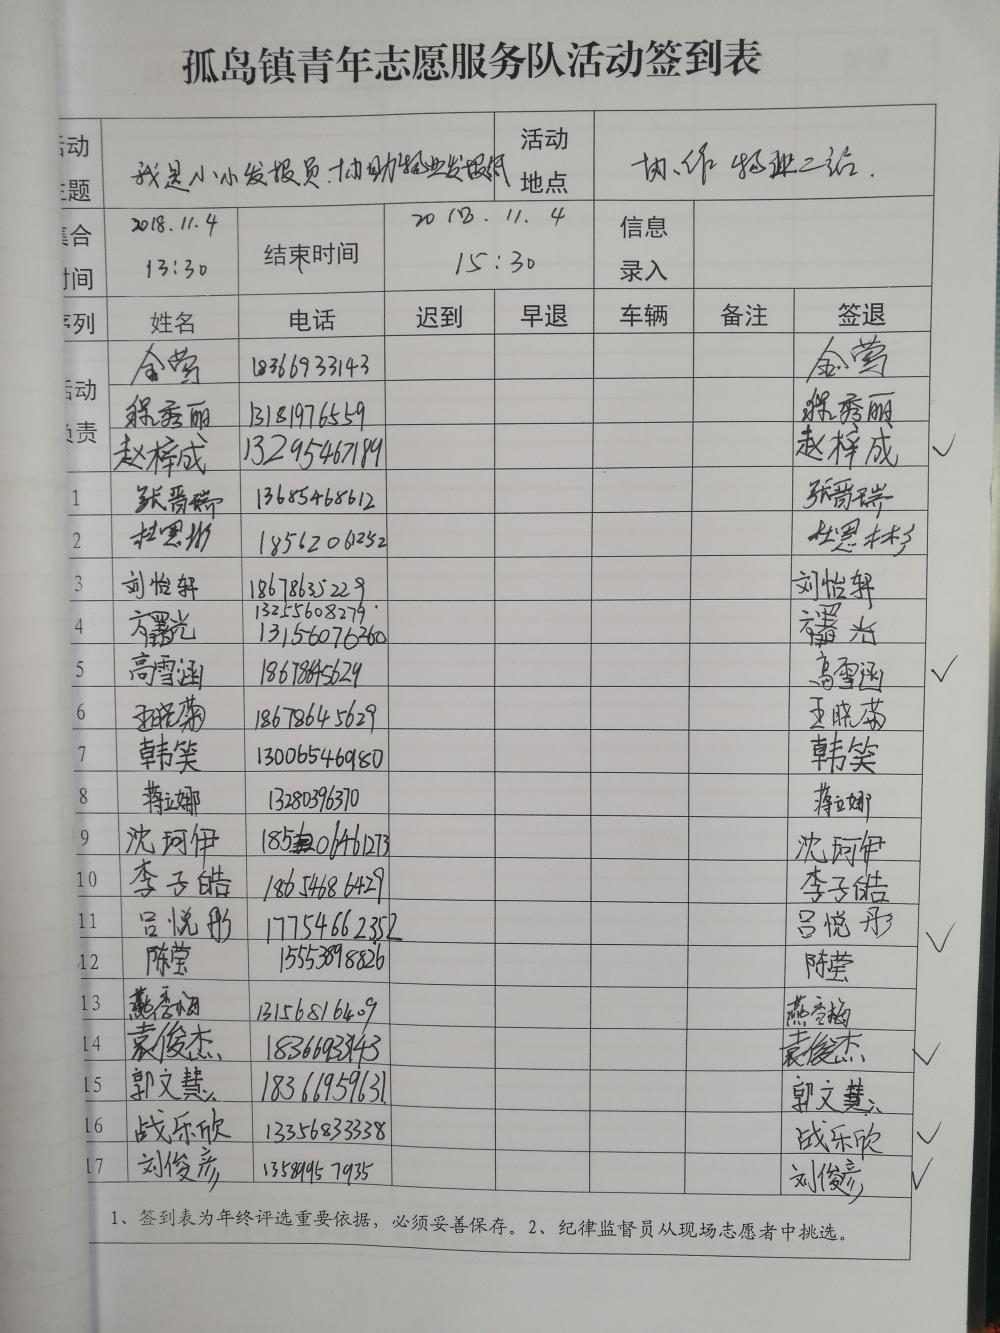 孤岛镇青年志愿服务队活动签到表
活动主题 我是小小发报员.协助物业发报纸 活动地点 协作物业二站.
集合时间 2018.11.4 13:30 结束时间 2018.11.4 15:30 信息录入
序列 姓名 电话 迟到 早退 车辆 备注 签退
活动负责
金莺 18366933143 金莺
程秀丽 13181976559 程秀丽
赵梓成 13295467189 赵梓成 ✓
1 张晋瑞 13685468612 张晋瑞
2 杜恩彬 18562061252 杜恩彬
3 刘怡轩 18678635229 刘怡轩
13255608279
4 方曙光 13156076260 方曙光
5 高雪涵 18678645629 高雪涵 ✓
6 王晓菊 18678645629 王晓菊
7 韩笑 13006546980 韩笑
8 蒋立娜 13280396370 蒋立娜
9 沈珂伊 沈珂伊
10 李子皓 18654686429 李子皓
11 吕悦彤 17754662352 吕悦彤 ✓
12 陈莹 15553898826 陈莹
13 燕雪梅 13156816409 燕雪梅
14 袁俊杰 18366933143 袁俊杰 ✓
15 郭文慧 18366959631 郭文慧
16 战乐欣 13356833338 战乐欣 ✓
17 刘俊彦 13589957935 刘俊彦 ✓
1、签到表为年终评选重要依据，必须妥善保存。2、纪律监督员从现场志愿者中挑选。